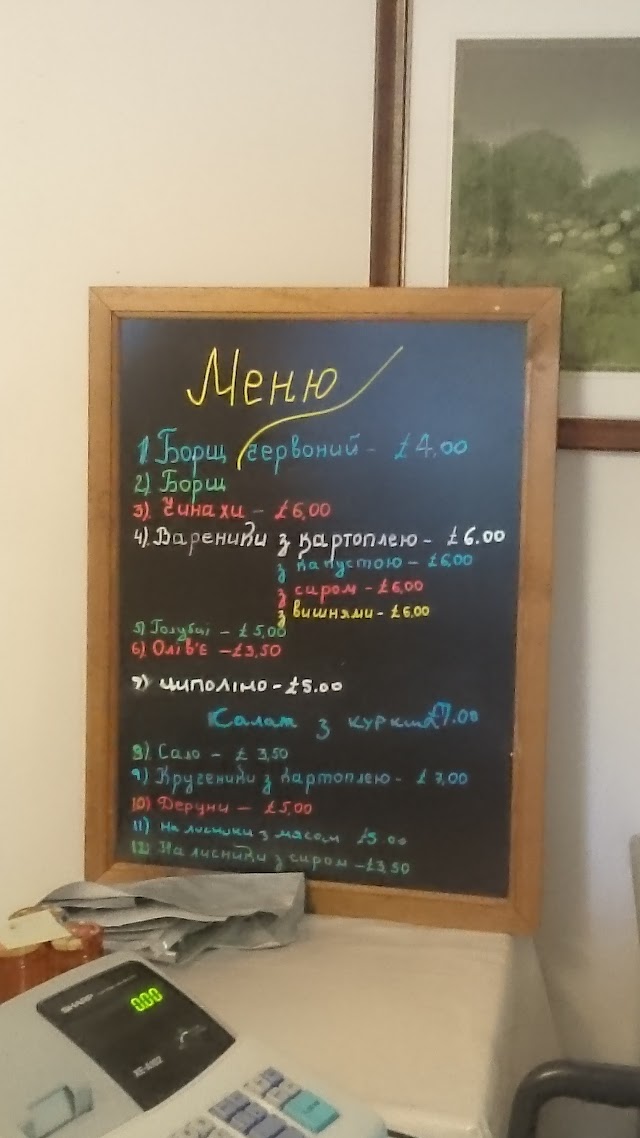 Меню
1) Борщ червоний - £4,00
2) Борщ
3) Чинахи - £6,00
4) Вареники з картоплею - £6.00
з капустою - £6,00
з сиром - £6,00
з вишнями - £6,00
5) Голубці - £5,00
6) Олів'є - £3,50
7) Циполіно - £5.00
Салат з куркою £7.00
8) Сало - £ 3,50
9) Кругеники з картоплею - £ 7,00
10) Деруни - £5,00
11) Налисники з мясом £5.00
12) Налисники з сиром - £3,50
SHARP
0.00
XE-A102